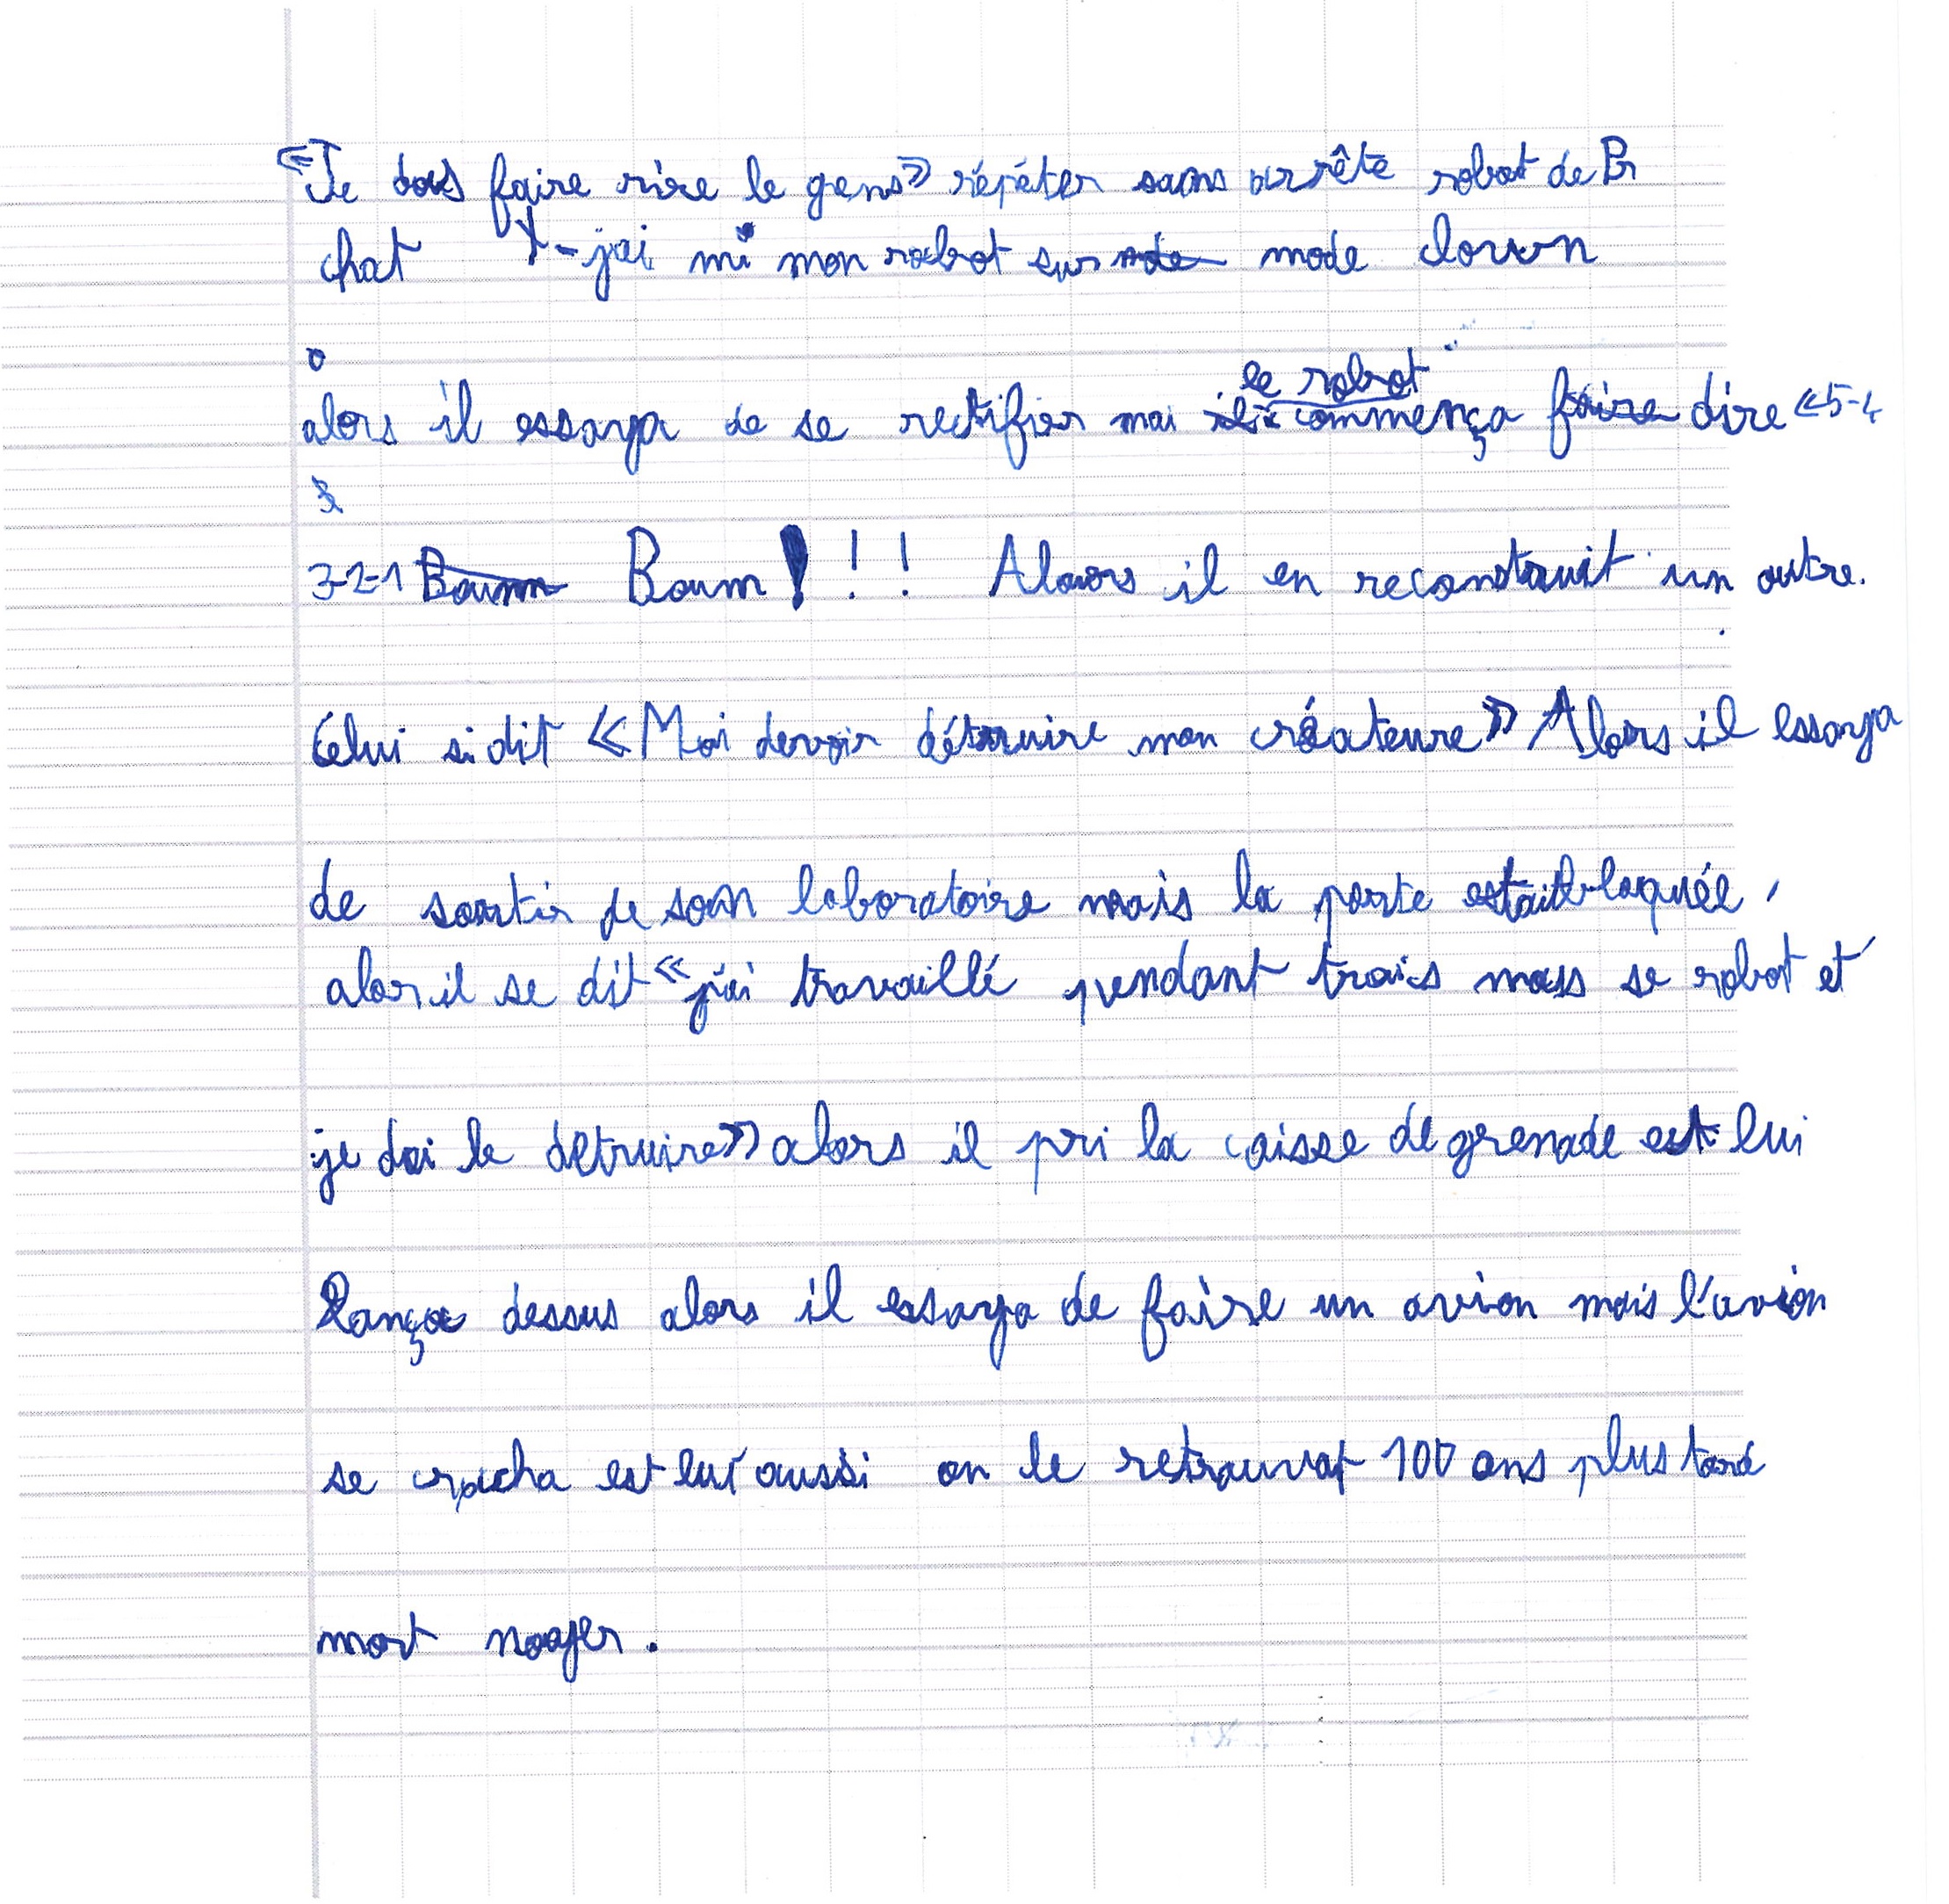 «Je dois faire rire le gens» répéter sans arrête robot de Pr
chat - j'ai mi mon robot sur mode clown
alors il essaya de se rectifier mai le robot commença dire «5-4
3-2-1 Boum ! ! ! Alors il en reconstruit un autre.
Celui si dit «Moi devoir détruire mon créateure» Alors il essaya
de sortir de son laboratoire mais la porte était bloquée,
alor il se dit «j'ai travaillé pendant trois mois se robot et
je doi le detruire» alors il pri la caisse de grenade est lui
lança dessus alors il essaya de faire un avion mais l'avion
se cracha est lui aussi on le retrouvat 100 ans plus tard
mort noyer.